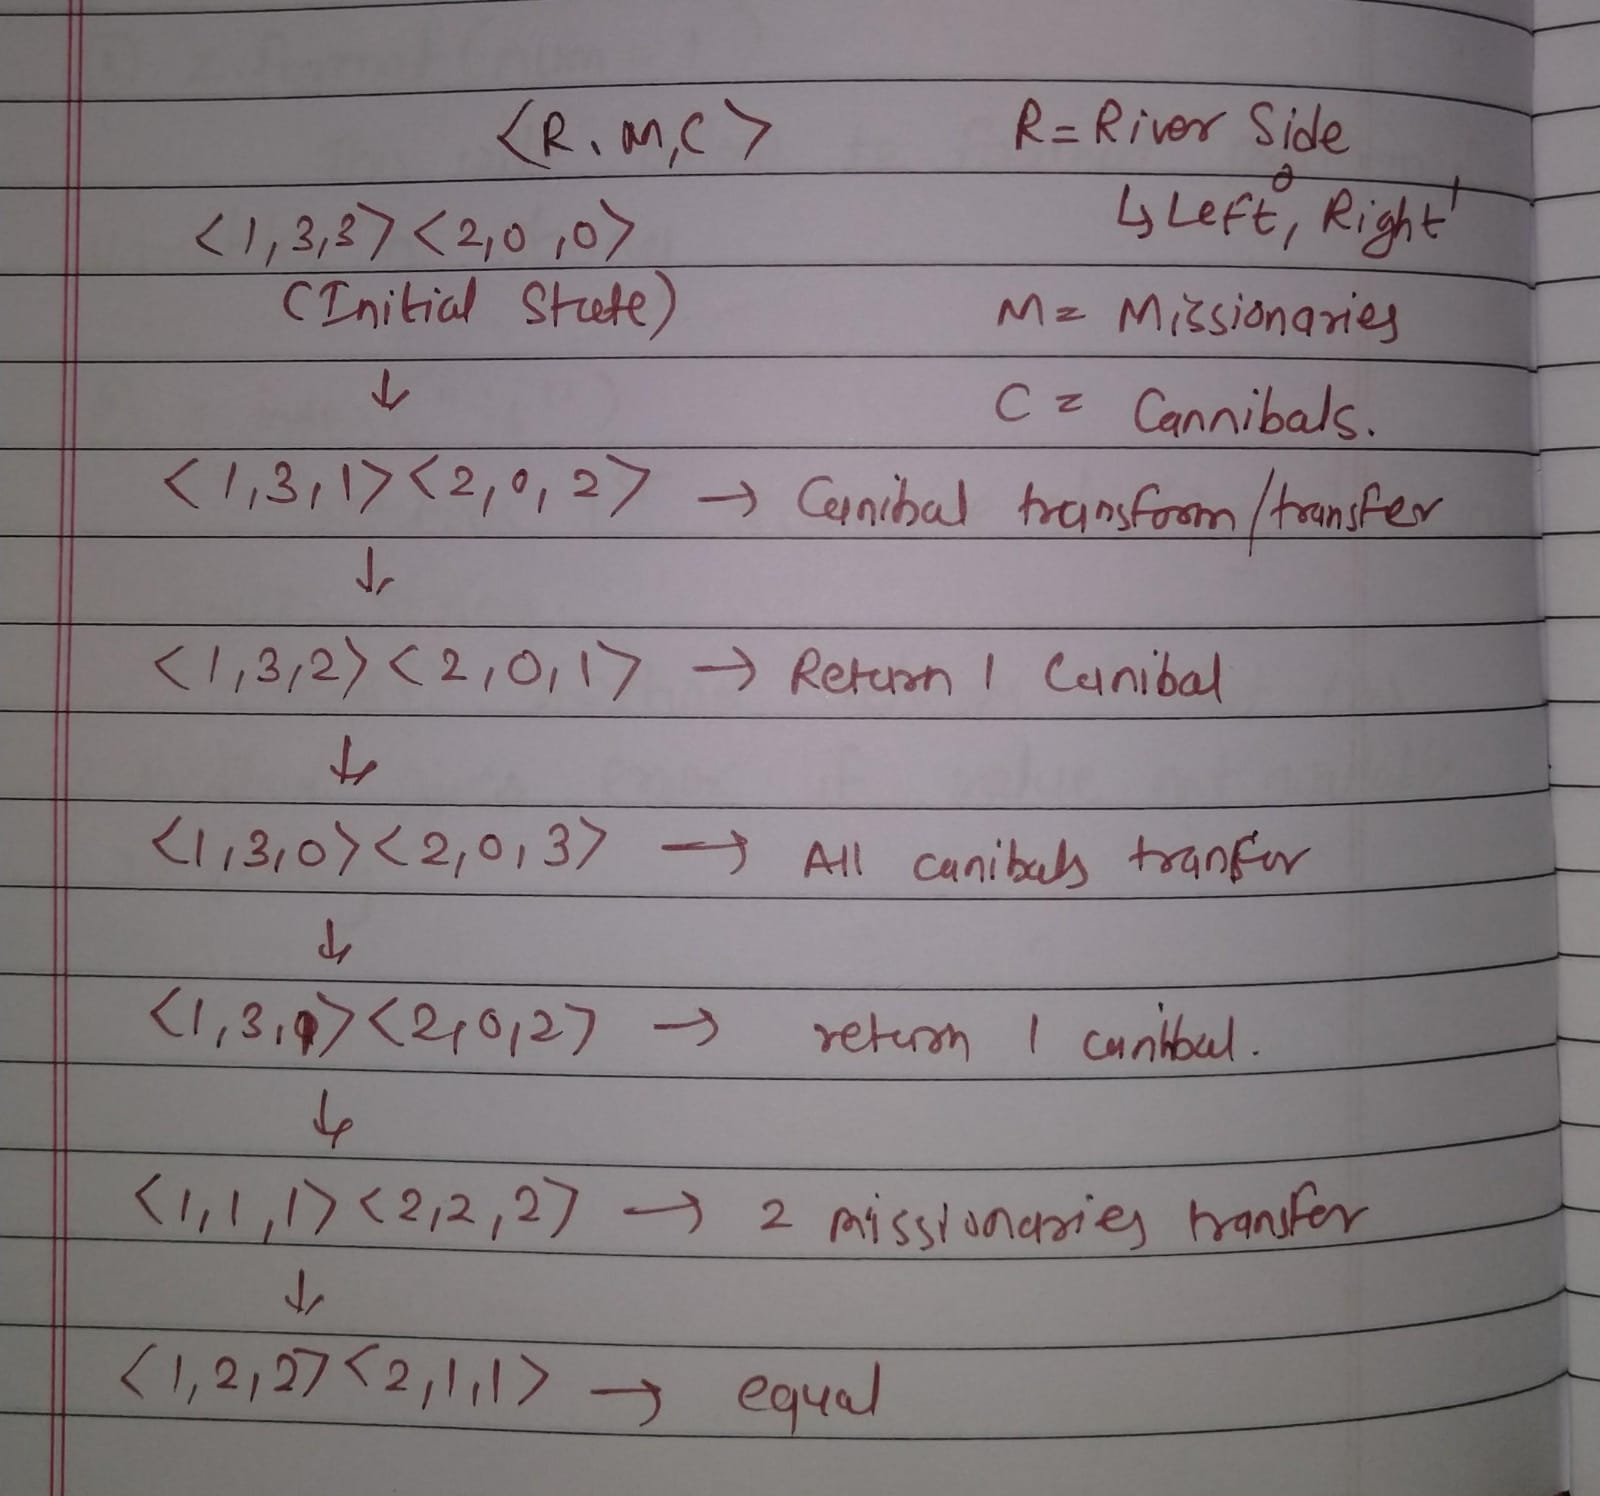 <R, M, C> R = River Side
0 1
↳ Left, Right
<1,3,3> <2,0,0>
(Initial State) M = Missionaries
↓ C = Cannibals.
<1,3,1> <2,0,2> → Cannibal transform/transfer
↓
<1,3,2> <2,0,1> → Return 1 Canibal
↓
<1,3,0> <2,0,3> → All canibals tranfer
↓
<1,3,1> <2,0,2> → return 1 canibal.
↓
<1,1,1> <2,2,2> → 2 missionaries transfer
↓
<1,2,2> <2,1,1> → equal